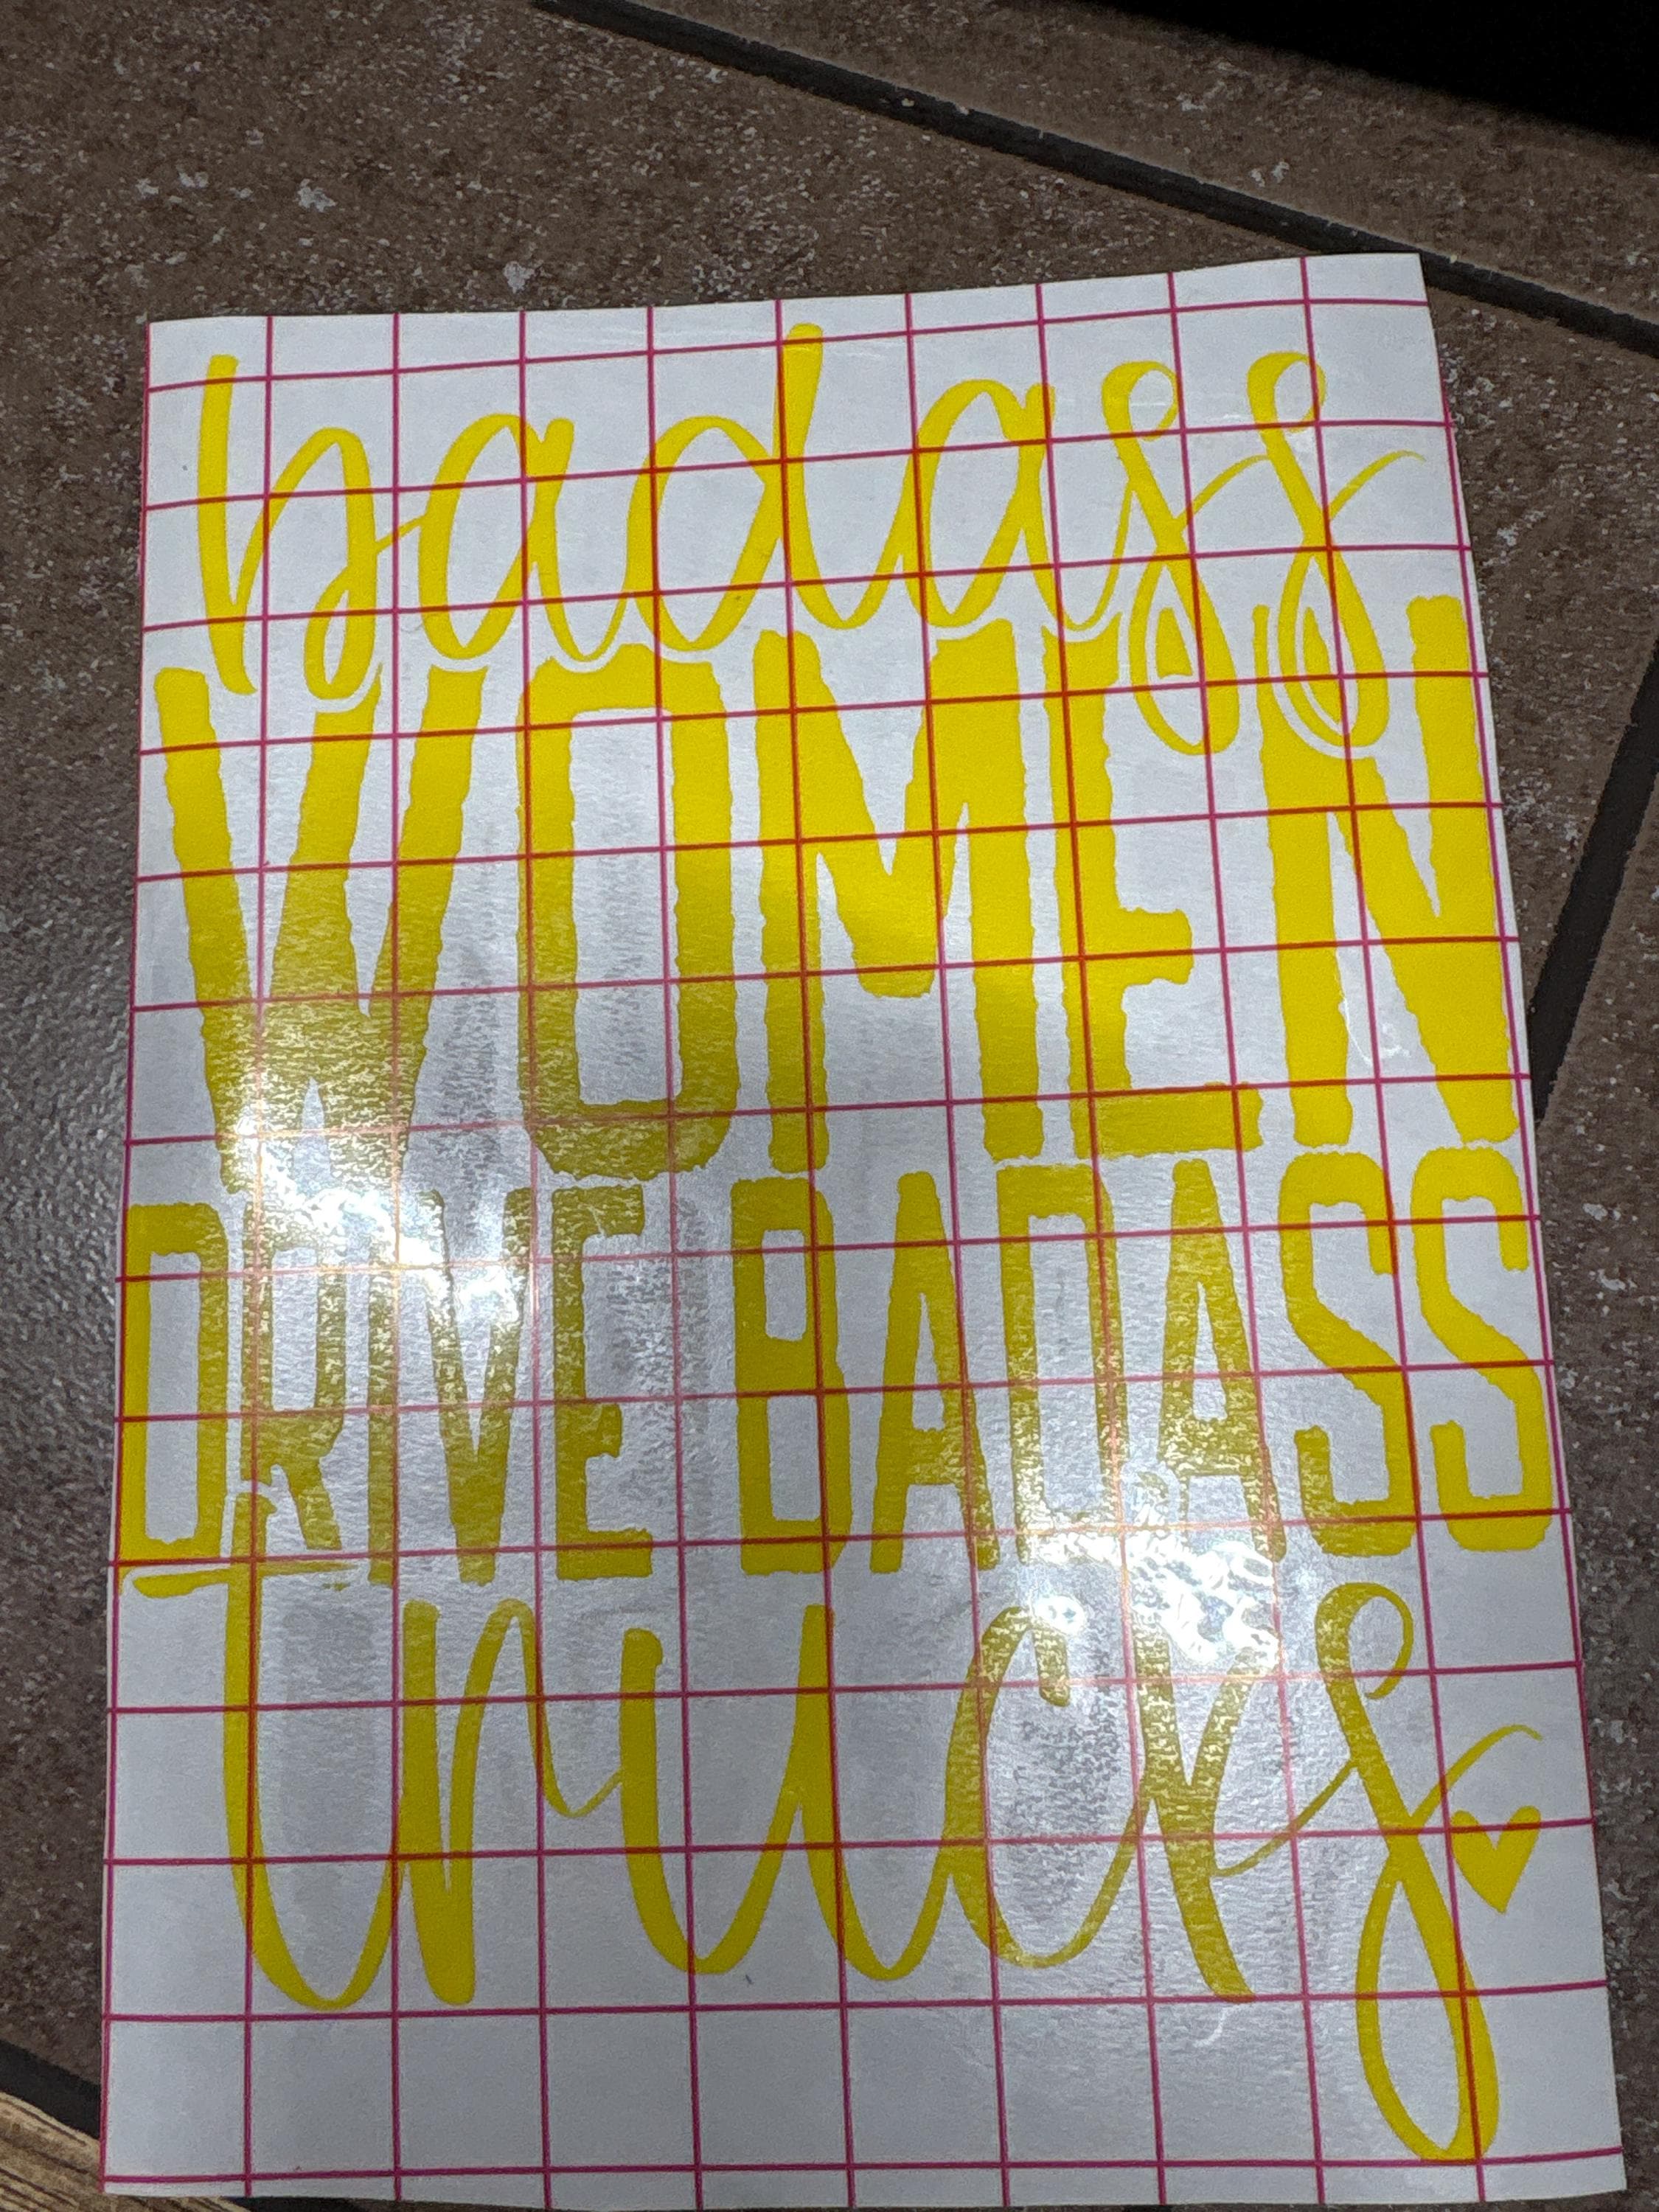 badass
WOMEN
DRIVE BADASS
trucks